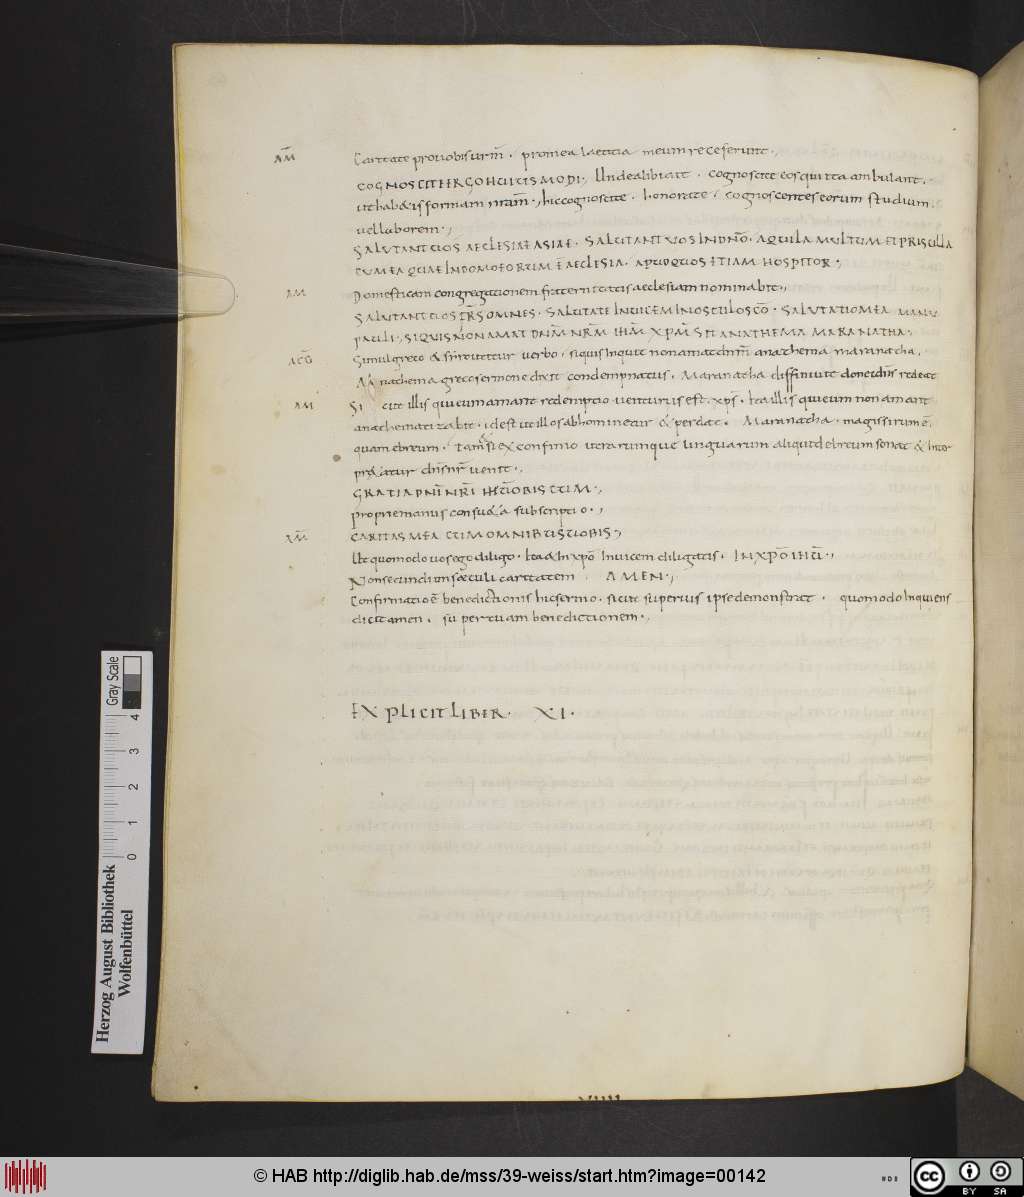 AM̅ Caritate pro uobis urm̅ . pro mea laetitia meum receperunt .,
COGNOSCITE ERGO HUIUSMODI ., Unde alibi ait . cognoscite eos qui ita ambulant .
ut habetis formam nram̅ ., hic cognoscite . honorate . cognoscentes eorum studium
uel laborem .,
SALUTANT UOS AECLESIAE ASIAE . SALUTANT UOS IN DNO̅ . AQUILA MULTUM ET PRISCILLA
CUM EA QUAE IN DOMO EORUM E̅ AECLESIA . APUD QUOS ETIAM HOSPITOR .,
AM Domesticam congregationem fraternitatis aeclesiam nominabit .,
SALUTANT UOS FR̅S OMNES . SALUTATE INUICEM IN OSCULO SCO̅ . SALUTATIO MEA MANU
PAULI ., SI QUIS NON AMAT DNM̅ NR̅M IHM̅ XPM̅ SIT ANATHEMA MARANATHA .
AUG̅ Simul greco & syro utitur uerbo . si quis inquit non amat dnm̅ anathema maranatha .
Anathema greco sermone dixit condempnatus . Maranatha diffiniuit donec dn̅s redeat
AM Sicut illis qui eum amant redemptio uenturus est . xps̅ . ita illis qui eum non amant
anathematizabit . id est ut illos abhominetur & perdat . Maranatha . magis sirum e̅ .
quam ebreum . tam & si ex confinio utrarumque linguarum aliquid ebreum sonat & inter
praetatur dn̅s nr̅ uenit .,
GRATIA DNI̅ NRI̅ IHU̅ UOBISCUM .,
propriae manus consueta subscriptio .,
AM̅ CARITAS MEA CUM OMNIBUS UOBIS ,
Ut quomodo uos ego diligo . ita & in xpo̅ inuicem diligatis . IN XPO̅ IHU̅ .,
Non secundum saeculi caritatem . AMEN .,
Confirmatio e̅ benedictionis hic sermo . sicut superius ipse demonstrat . quomodo inquiens
dicit amen . super tuam benedictionem .,
EXPLICIT LIBER . XI .
Gray Scale
4 3 2 1 0
Herzog August Bibliothek
Wolfenbüttel
© HAB http://diglib.hab.de/mss/39-weiss/start.htm?image=00142
cc BY SA